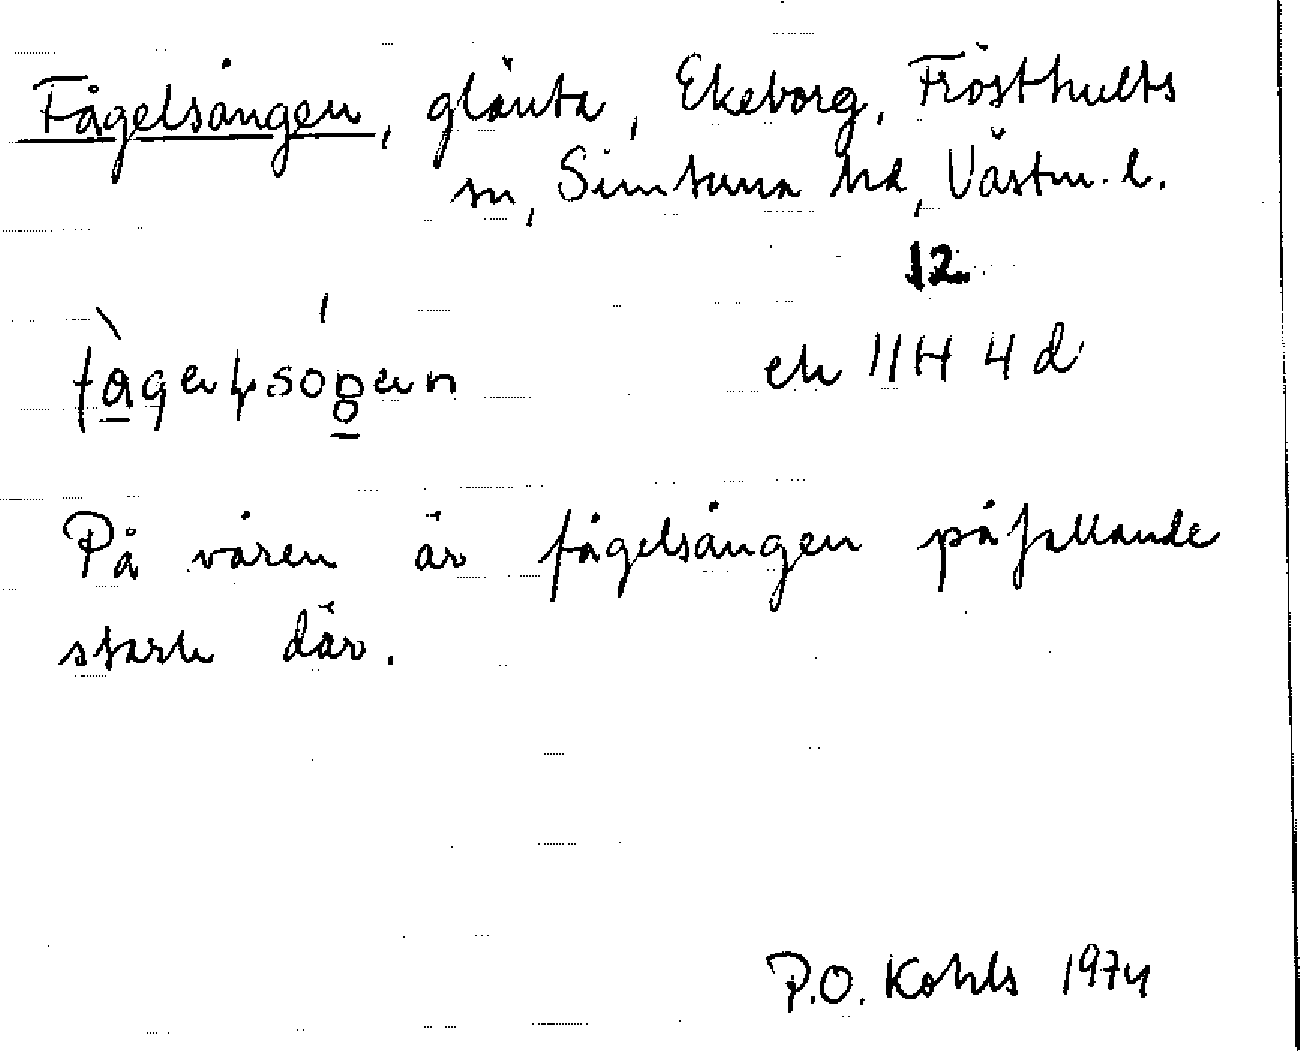 Fågelsången, glänta, Ekeborg, Frösthults
sn, Simtuna hd, Västm. l.
12
ek 11H 4d
På våren är fågelsången påfallande
stark där.
P.O. Kohls 1974